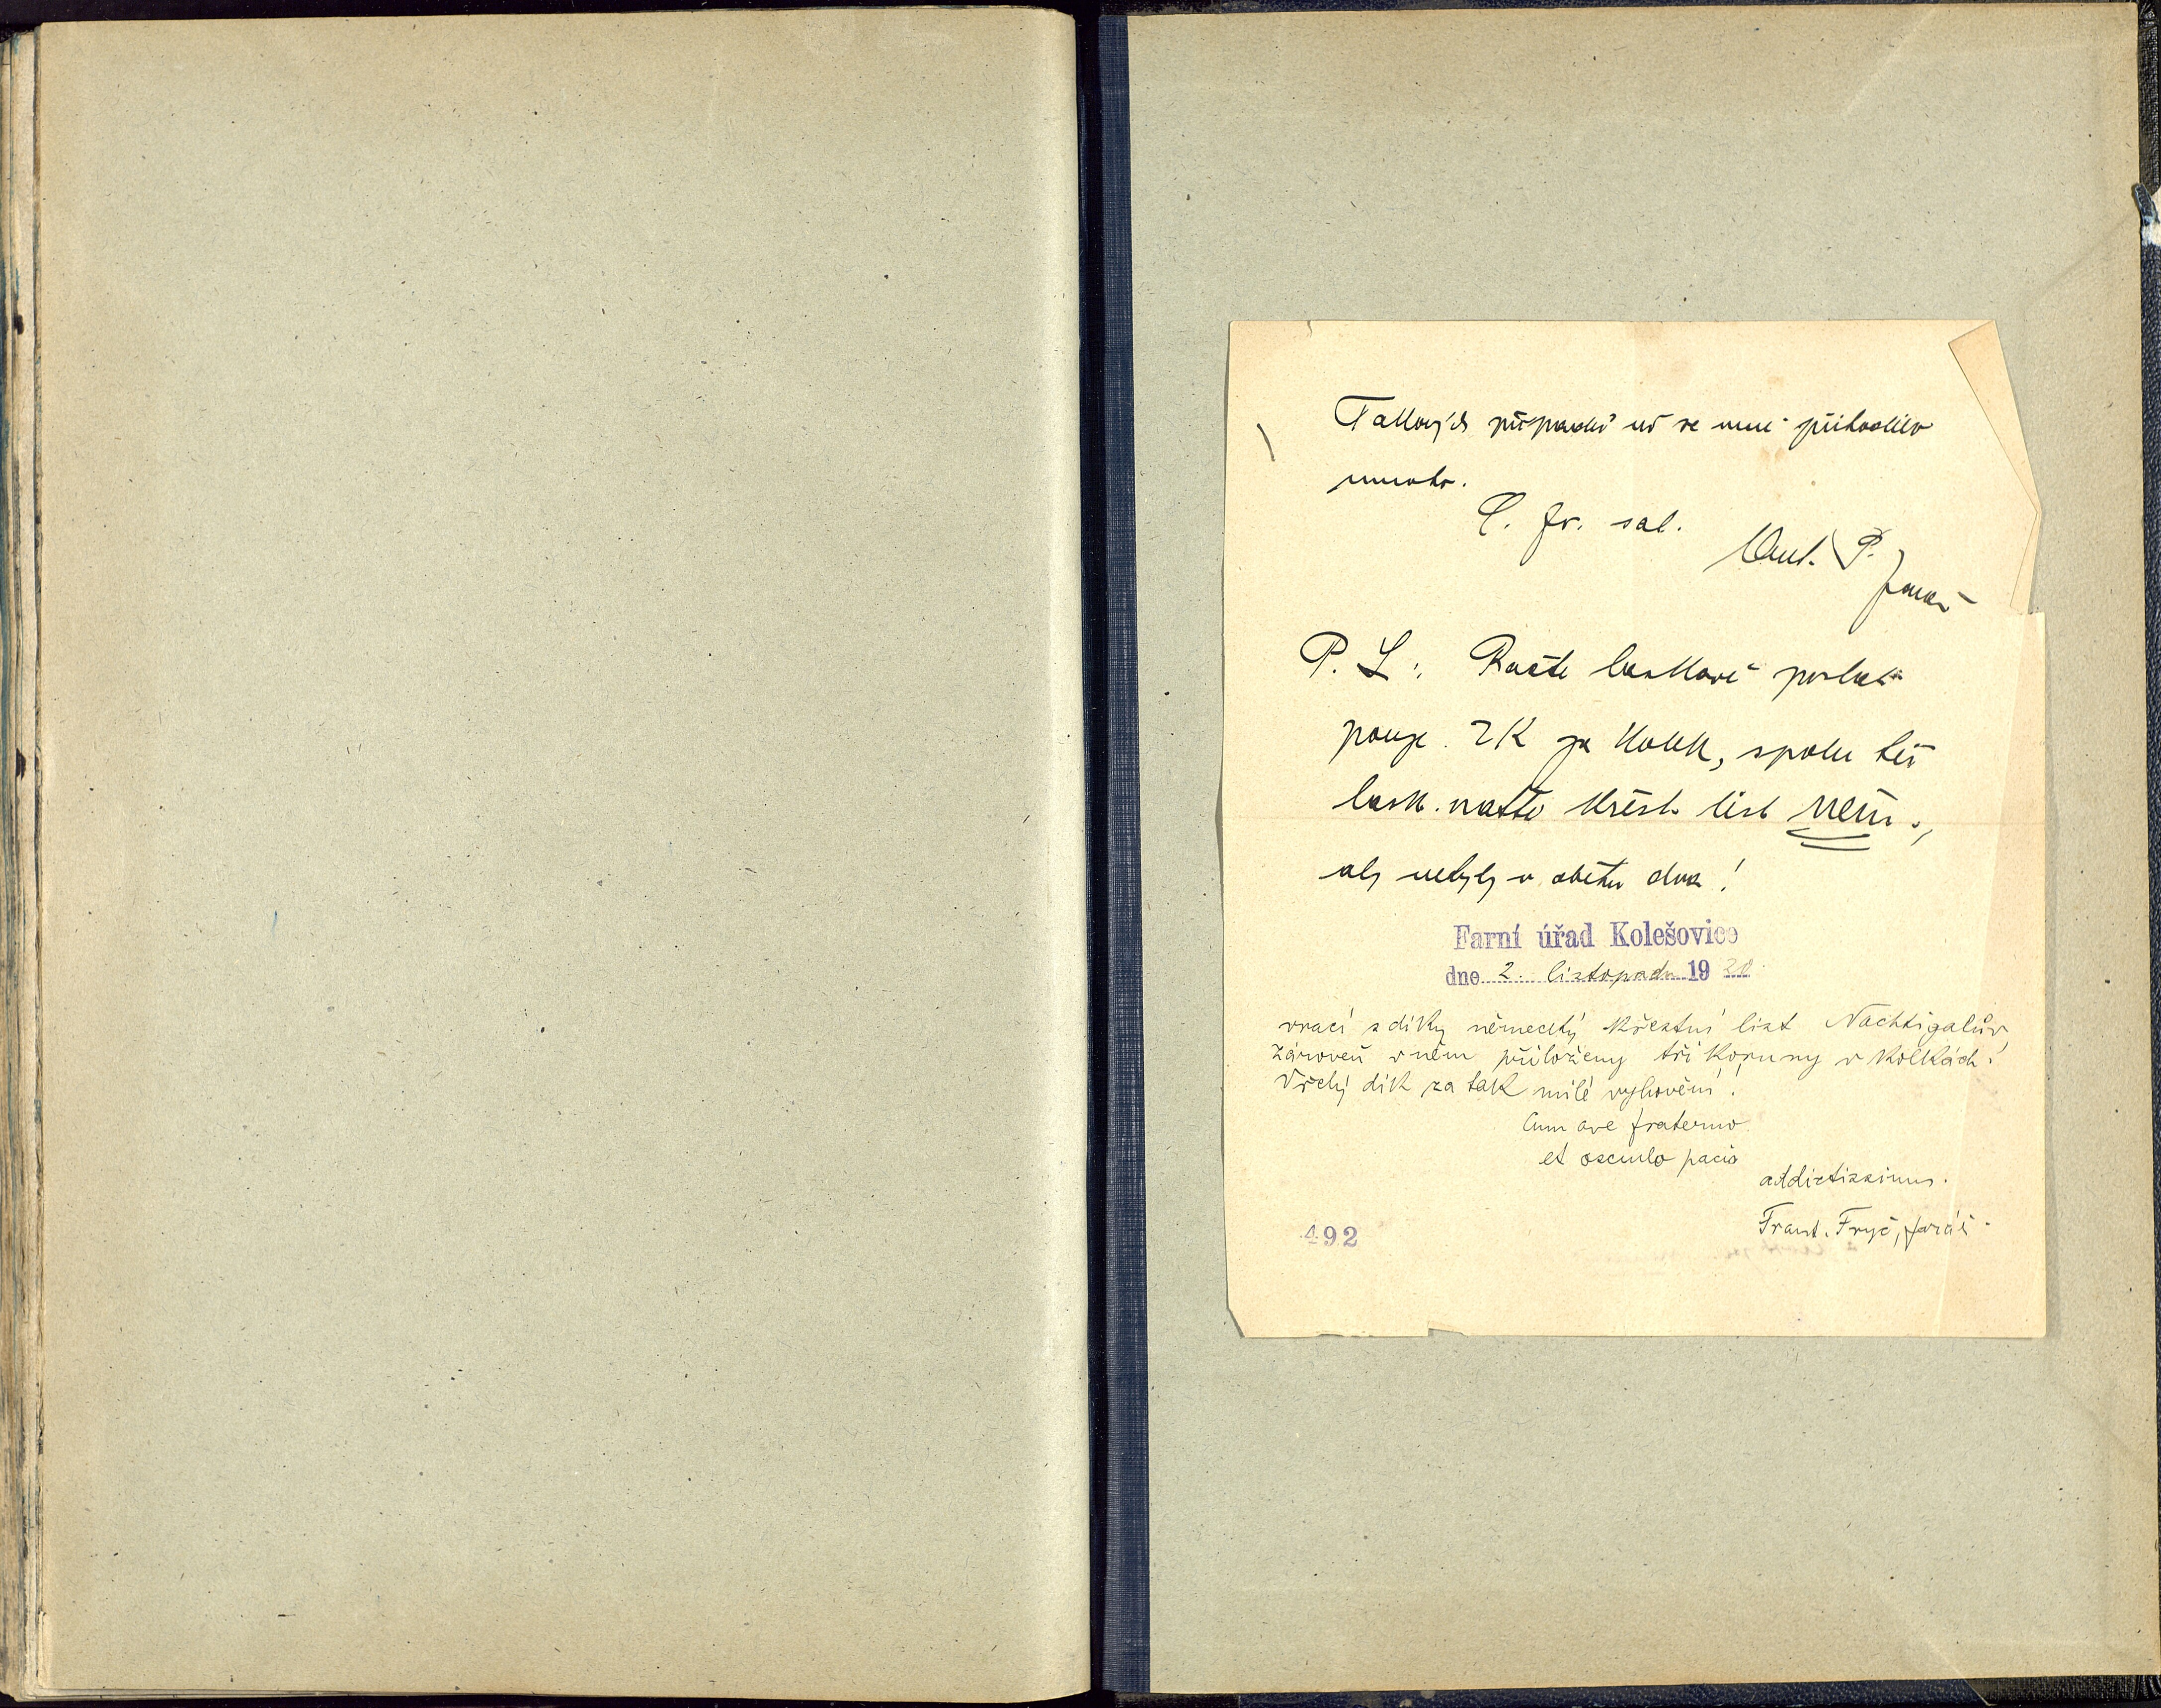 Takových případů už se mně přihodilo
mnoho.
C. fr. sal.
Ant. P.
farář
P. S.: Račte laskavě poslati
pouze 2 K za kolek, spolu též
lask. račte křest. list něm.,
aby nebyly v oběhu dva!
Farní úřad Kolešovice
dne 2. listopadu 19
vrací s díky německý křestní list Nachtigalův
zároveň v něm přiloženy tři koruny v kolkách.
Vřelý dík za tak milé vyhovění.
Cum ave fraterno
et osculo pacis
addictissimus.
Frant. Fryč, farář.
492